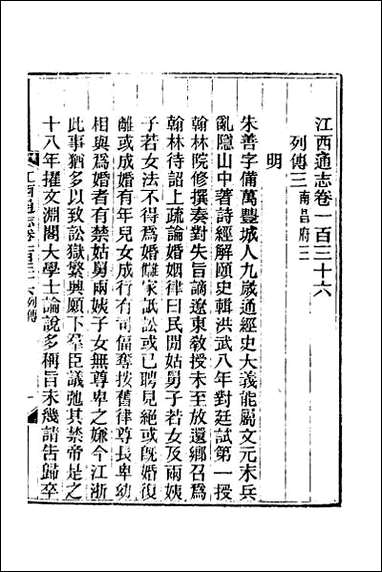 江西通志卷一百三十六
列傳三 南昌府三
明
朱善字備萬豐城人九歲通經史大義能屬文元末兵
亂隱山中著詩經解頤史輯洪武八年對廷試第一授
翰林院修撰奏對失旨謫遼東敎授未至放還鄉召爲
翰林待詔上疏論婚姻律曰民間姑舅子若女及兩姨
子若女法不得爲婚讎家詆訟或已聘見絕或旣婚復
離或成婚有年兒女成行有司偪奪按舊律尊長卑幼
相與爲婚者有禁姑舅兩姨子女無尊卑之嫌今江浙
此事猶多以致訟獄繁興願下羣臣議弛其禁帝是之
十八年擢文淵閣大學士論說多稱旨未幾請告歸卒
江西通志卷一百三十六 列傳 一